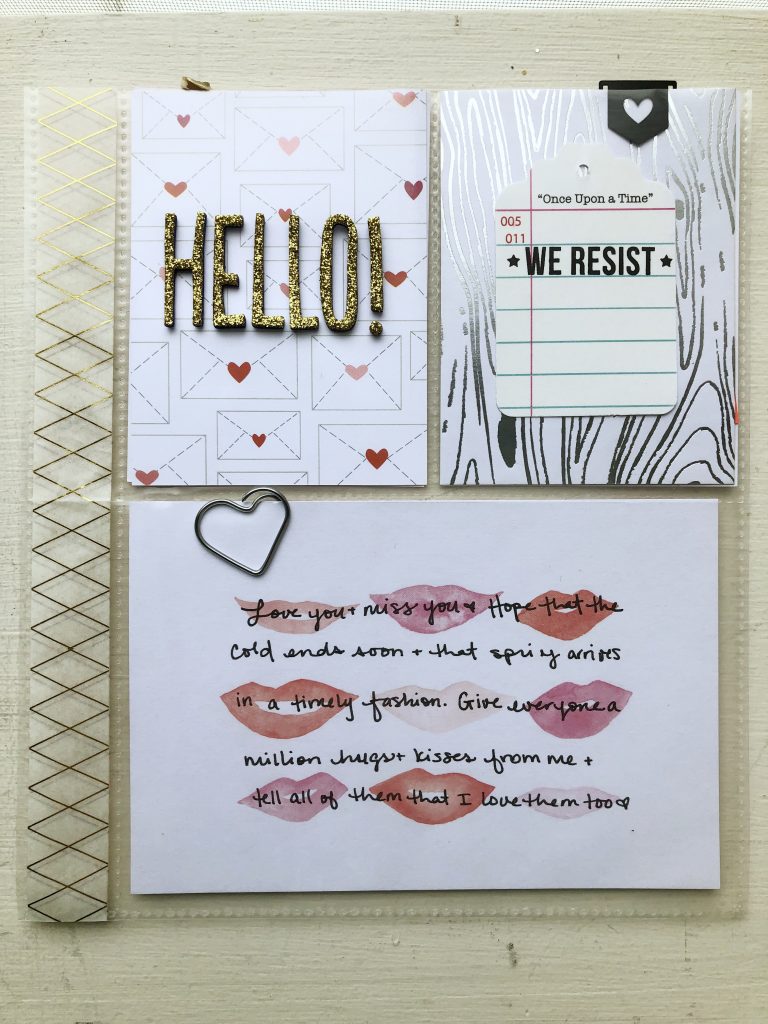 HELLO!
"Once Upon a Time"
005
011
★ WE RESIST ★
Love you + miss you ♥ Hope that the
cold ends soon + that spring arrives
in a timely fashion. Give everyone a
million hugs + kisses from me +
tell all of them that I love them too ♥